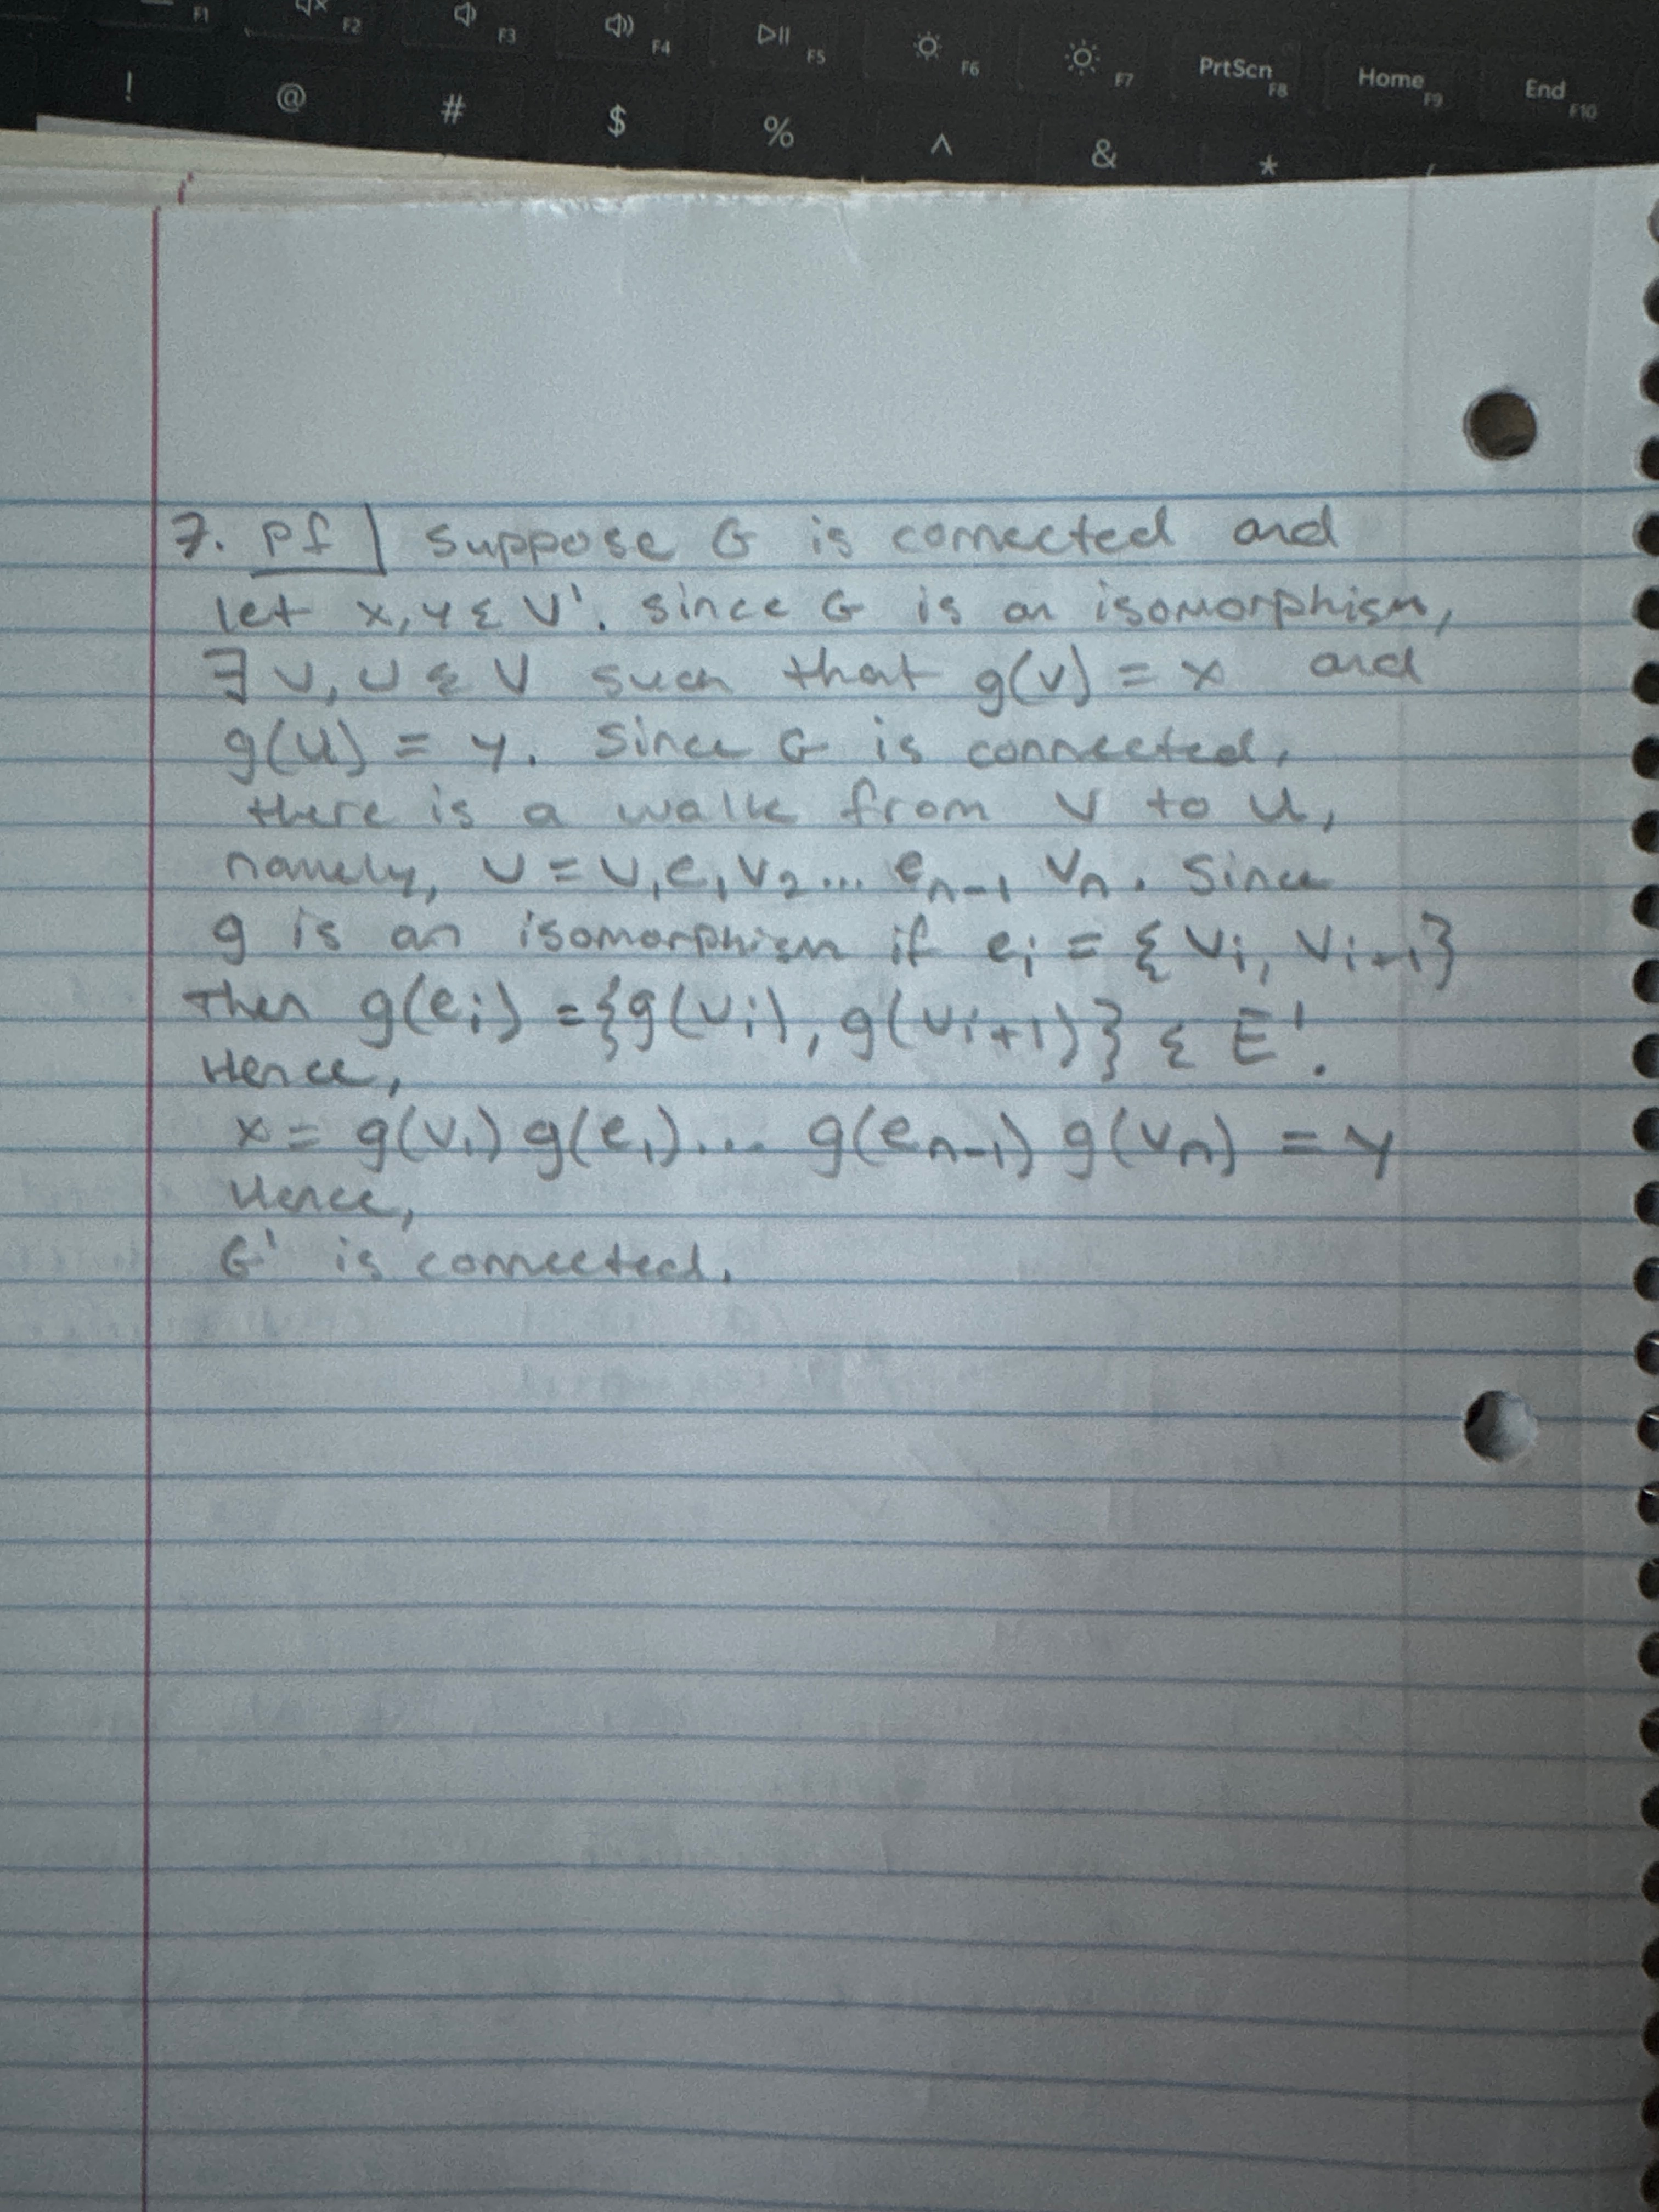 F1 F2 F3 F4 F5 F6 F7 PrtScn F8 Home F9 End F10
! @ # $ % ^ & *
7. pf | Suppose G is connected and
let x, y ε V'. Since G is an isomorphism,
∃ v, u ε V such that g(v) = x and
g(u) = y. Since G is connected,
there is a walk from v to u,
namely, v = v₁e₁v₂... eₙ₋₁ vₙ. Since
g is an isomorphism if eᵢ = {vᵢ, vᵢ₊₁}
Then g(eᵢ) = {g(vᵢ), g(vᵢ₊₁)} ε E'.
Hence,
x = g(v₁) g(e₁).... g(eₙ₋₁) g(vₙ) = y
Hence,
G' is connected.